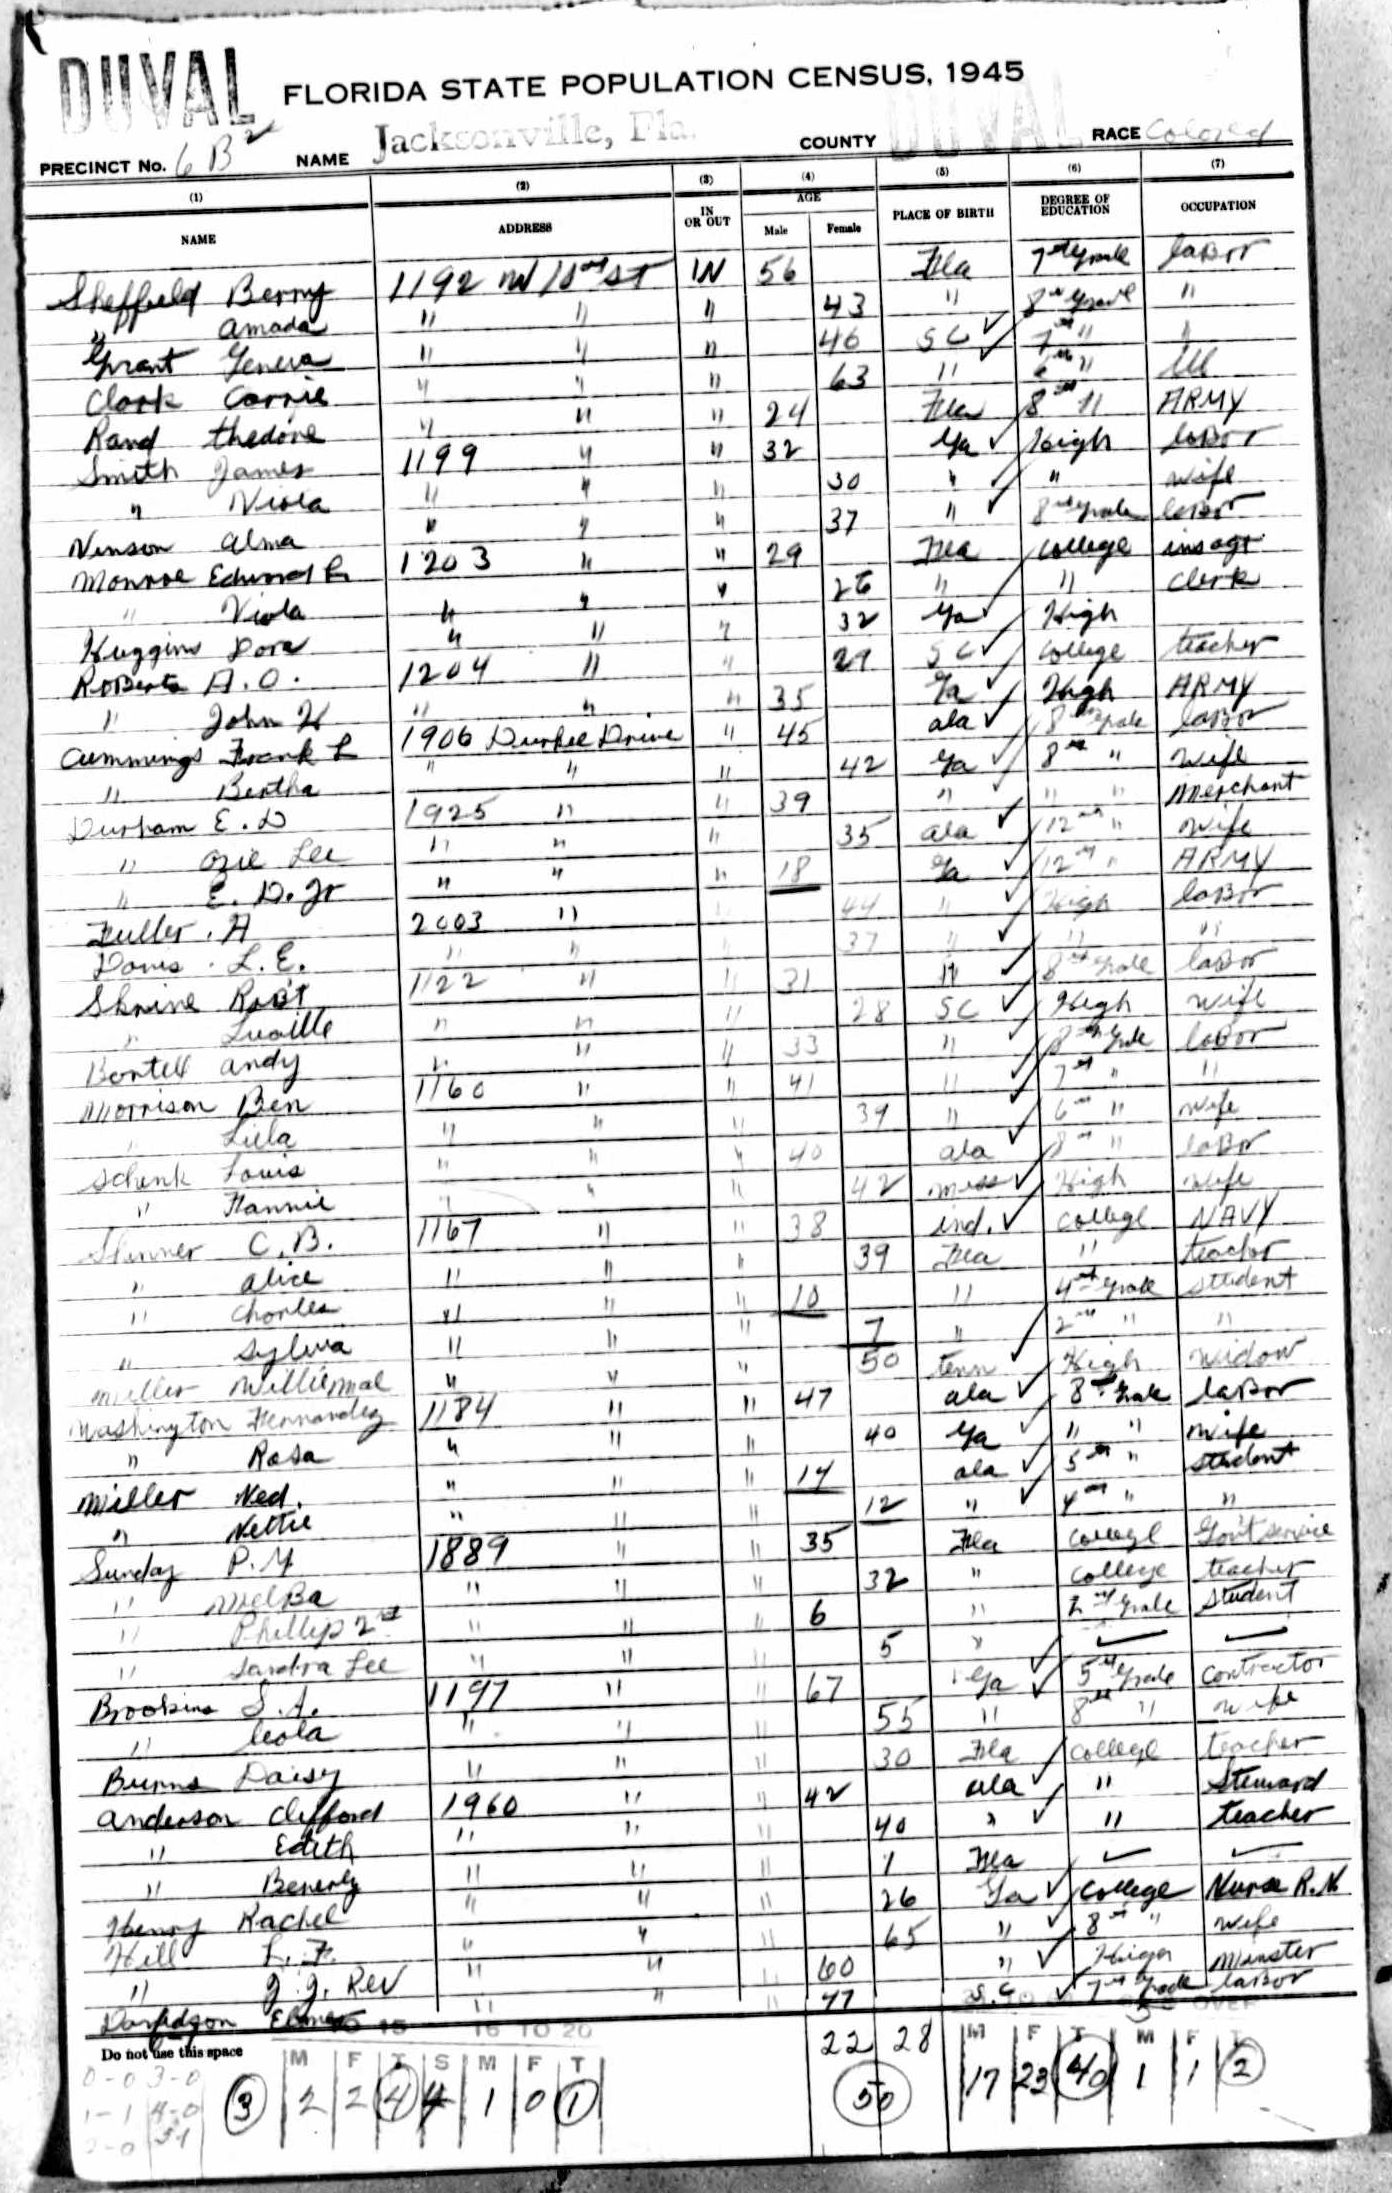 DUVAL
FLORIDA STATE POPULATION CENSUS, 1945
PRECINCT No. 6 B NAME Jacksonville, Fla. COUNTY DUVAL RACE Colored
(1) (2) (3) (4) (5) (6) (7)
NAME ADDRESS IN OR OUT AGE Male Female PLACE OF BIRTH DEGREE OF EDUCATION OCCUPATION
Sheffield Berry 1192 W st IN 56 Fla 7th Grade labor
" Amada " " " 43 " 8th Grade "
Grant Geneva " " " 46 SC ✓ 7th " "
Clark Carrie " " " 63 " ✓ "
Rand thedore " " " 24 Fla 8th " ARMY
Smith James 1199 " " 32 Ga ✓ High labor
" Viola " " " 30 " " wife
Vinson Alma " " " 37 " ✓ 8th Grade labor
Monroe Edward 1203 " " 29 Fla College ins agt
" Viola " " " 26 " " Clerk
Huggins Dora " " " 32 Ga ✓ High
Roberts A. O. 1204 " " 29 SC ✓ College teacher
" John H " " " 35 Ga ✓ High ARMY
Cummings Frank L 1906 Durkee Drive " 45 ala ✓ 8th Grade labor
" Bertha " " " 42 Ga ✓ 8th " wife
Durham E. D 1925 " " 39 " " " Merchant
" Ozie Lee " " " 35 ala ✓ 12th " wife
" E. D. Jr " " " 18 Ga ✓ 12th " ARMY
Fuller . A 2003 " " 44 " ✓ High labor
Davis . L. E. " " " 37 " ✓ " "
Shrine Robt 1122 " " 31 " ✓ 8th Grade labor
" Lucille " " " 28 SC ✓ High wife
andy " " " 33 " ✓ 8th Grade labor
Morrison Ben 1160 " " 41 " ✓ 7th " "
" Lula " " " 39 " ✓ 6th " wife
Schenk Louis " " " 40 ala ✓ 8th " labor
" Fannie " " " 42 miss ✓ High wife
Skinner C. B. 1167 " " 38 ind. ✓ College NAVY
" Alice " " " 39 Fla " teacher
" Charles " " " 10 " 4th Grade student
" Sylvia " " " 7 " 2nd " "
Miller Willie Mae " " " 50 tenn ✓ High Widow
Washington Fernandez 1184 " " 47 ala ✓ 8th Grade labor
" Rosa " " " 40 Ga ✓ " " wife
Miller Ned. " " " 14 ala ✓ 5th " student
" Nettie " " " 12 " ✓ 4th " "
Sunday P. Y 1889 " " 35 Fla College Gov't service
" Melba " " " 32 " College teacher
" Phillip 2nd " " " 6 " 2nd Grade student
" Sandra Lee " " " 5 " ✓ ✓
Brookins S. A. 1197 " " 67 Ga ✓ 5th Grade contractor
" Ceola " " " 55 " 8th " wife
Burns Daisy " " " 30 Fla College teacher
Anderson Clifford 1960 " " 42 ala ✓ " Steward
" Edith " " " 40 " ✓ " teacher
" Beverly " " " 1 Fla ✓ ✓
Henry Rachel " " " 26 Ga ✓ College Nurse R. N
Hill L. F. " " " 65 " ✓ 8th " wife
" J. J. Rev " " " 60 " ✓ High Minster
Davidson Elmer " " " 47 S. C ✓ 7th Grade labor
Do not use this space 16 TO 20 OVER
22 28 M F T M F T
M F T S M F T
0-0 3-0
1-1 4-0
2-0 5-1
3 2 2 4 4 1 0 1 50 17 23 40 1 1 2